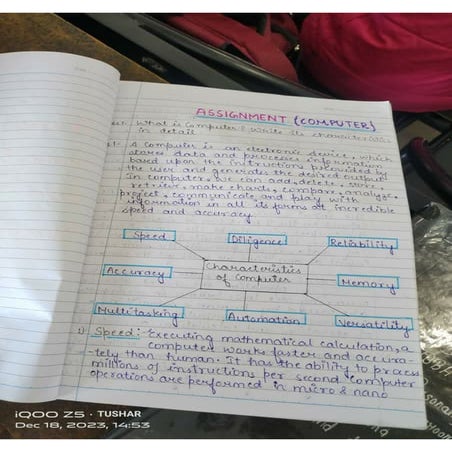 ASSIGNMENT (COMPUTER)
What is Computer? Write its characteristics
in detail
A computer is an electronic device, which
stores data and processes information
based upon the instructions provided by
the user and generates the desired output.
In computers, we can add, delete, save,
retrieve, make charts, compare, analyze,
project, communicate and play with
information in all its forms at incredible
speed and accuracy
Speed Diligence Reliability
Accuracy Characteristics of Computer Memory
Multitasking Automation Versatility
1) Speed:- Executing mathematical calculation, a
computer works faster and accura-
-tely than human. it has the ability to process
millions of instructions per second. Computer
operations are performed in micro & nano
iQOO Z5 · TUSHAR
Dec 18, 2023, 14:53